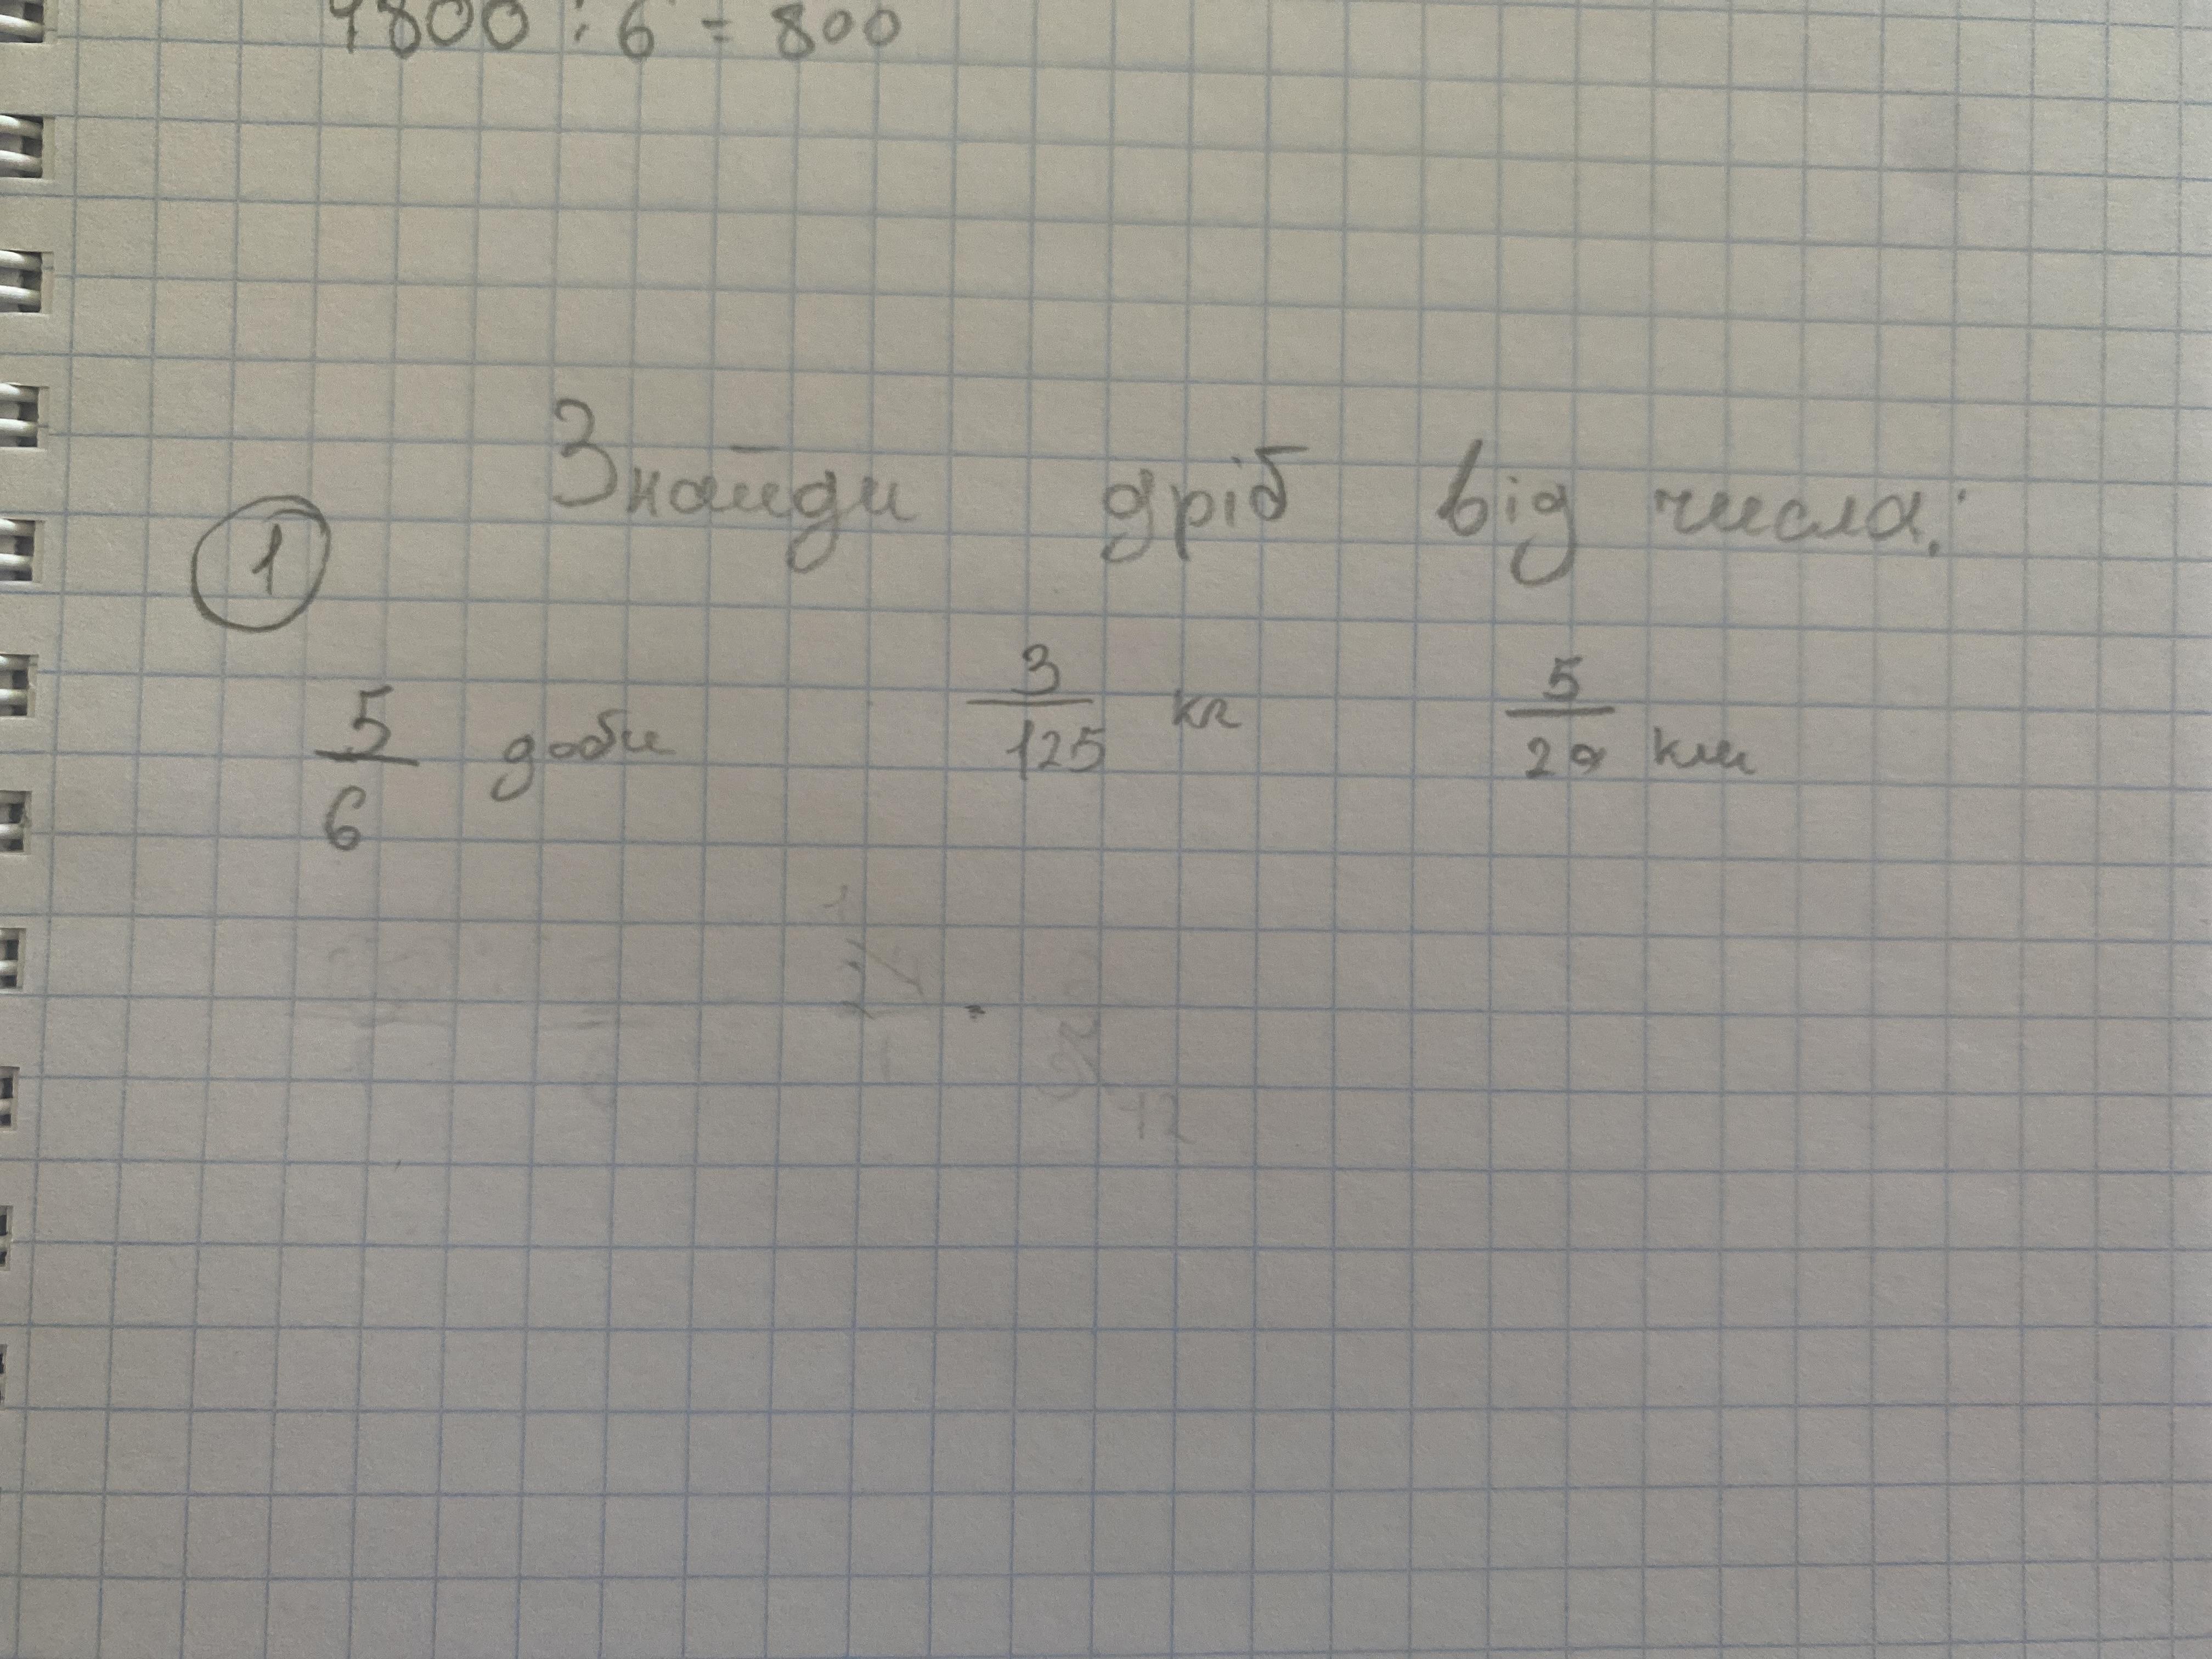 4800 : 6 = 800
Знайди дріб від числа:
1
5/6 доби 3/125 кг 5/20 км